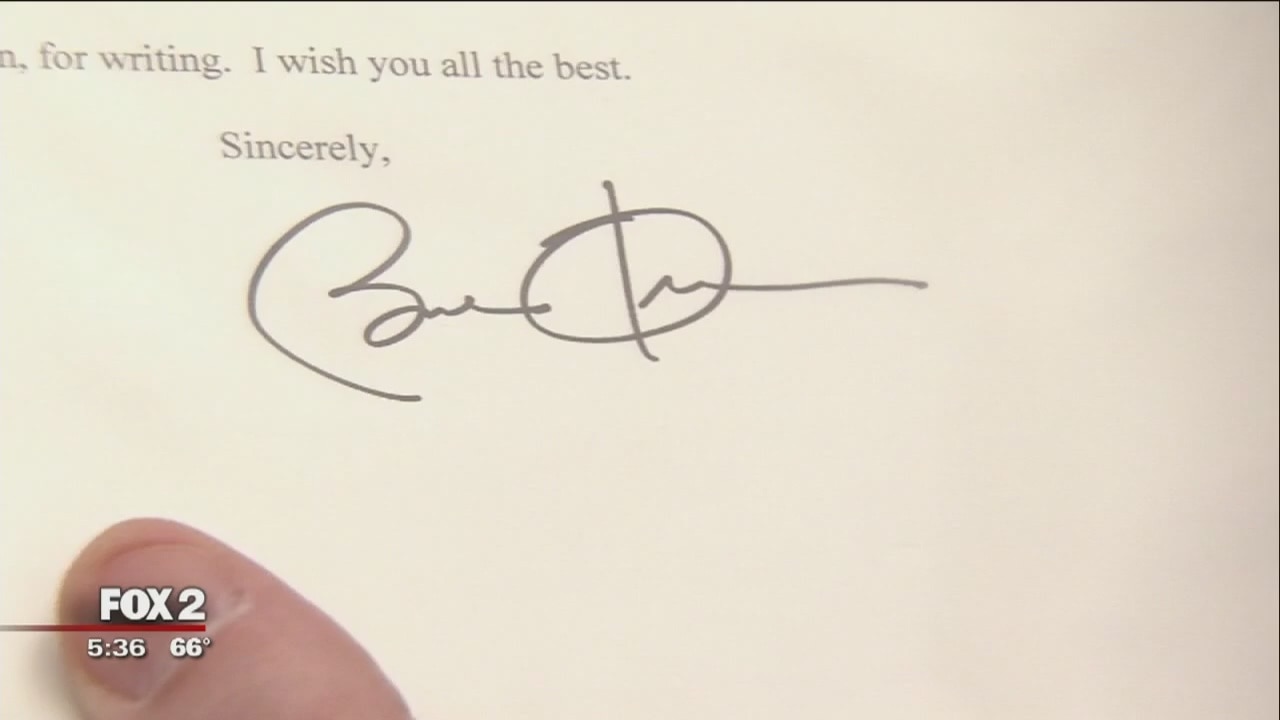 n, for writing. I wish you all the best.
Sincerely,
FOX 2
5:36 66°